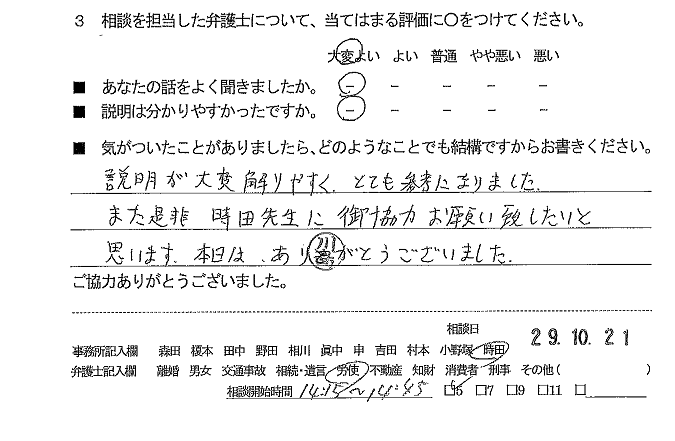 3 相談を担当した弁護士について、当てはまる評価に○をつけてください。
大変よい よい 普通 やや悪い 悪い
■ あなたの話をよく聞きましたか。 － － － － －
■ 説明は分かりやすかったですか。 － － － － －
■ 気がついたことがありましたら、どのようなことでも結構ですからお書きください。
説明が大変解りやすく、とても参考になりました。
また是非 時田先生に御協力お願い致したいと
思います。本日は、ありがとうございました。
ご協力ありがとうございました。
相談日 29.10.21
事務所記入欄 森田 榎本 田中 野田 相川 眞中 申 吉田 村本 小野塚 時田
弁護士記入欄 離婚 男女 交通事故 相続・遺言 労使 不動産 知財 消費者 刑事 その他( )
相談開始時間 14:15～14:45 □5 □7 □9 □11 □